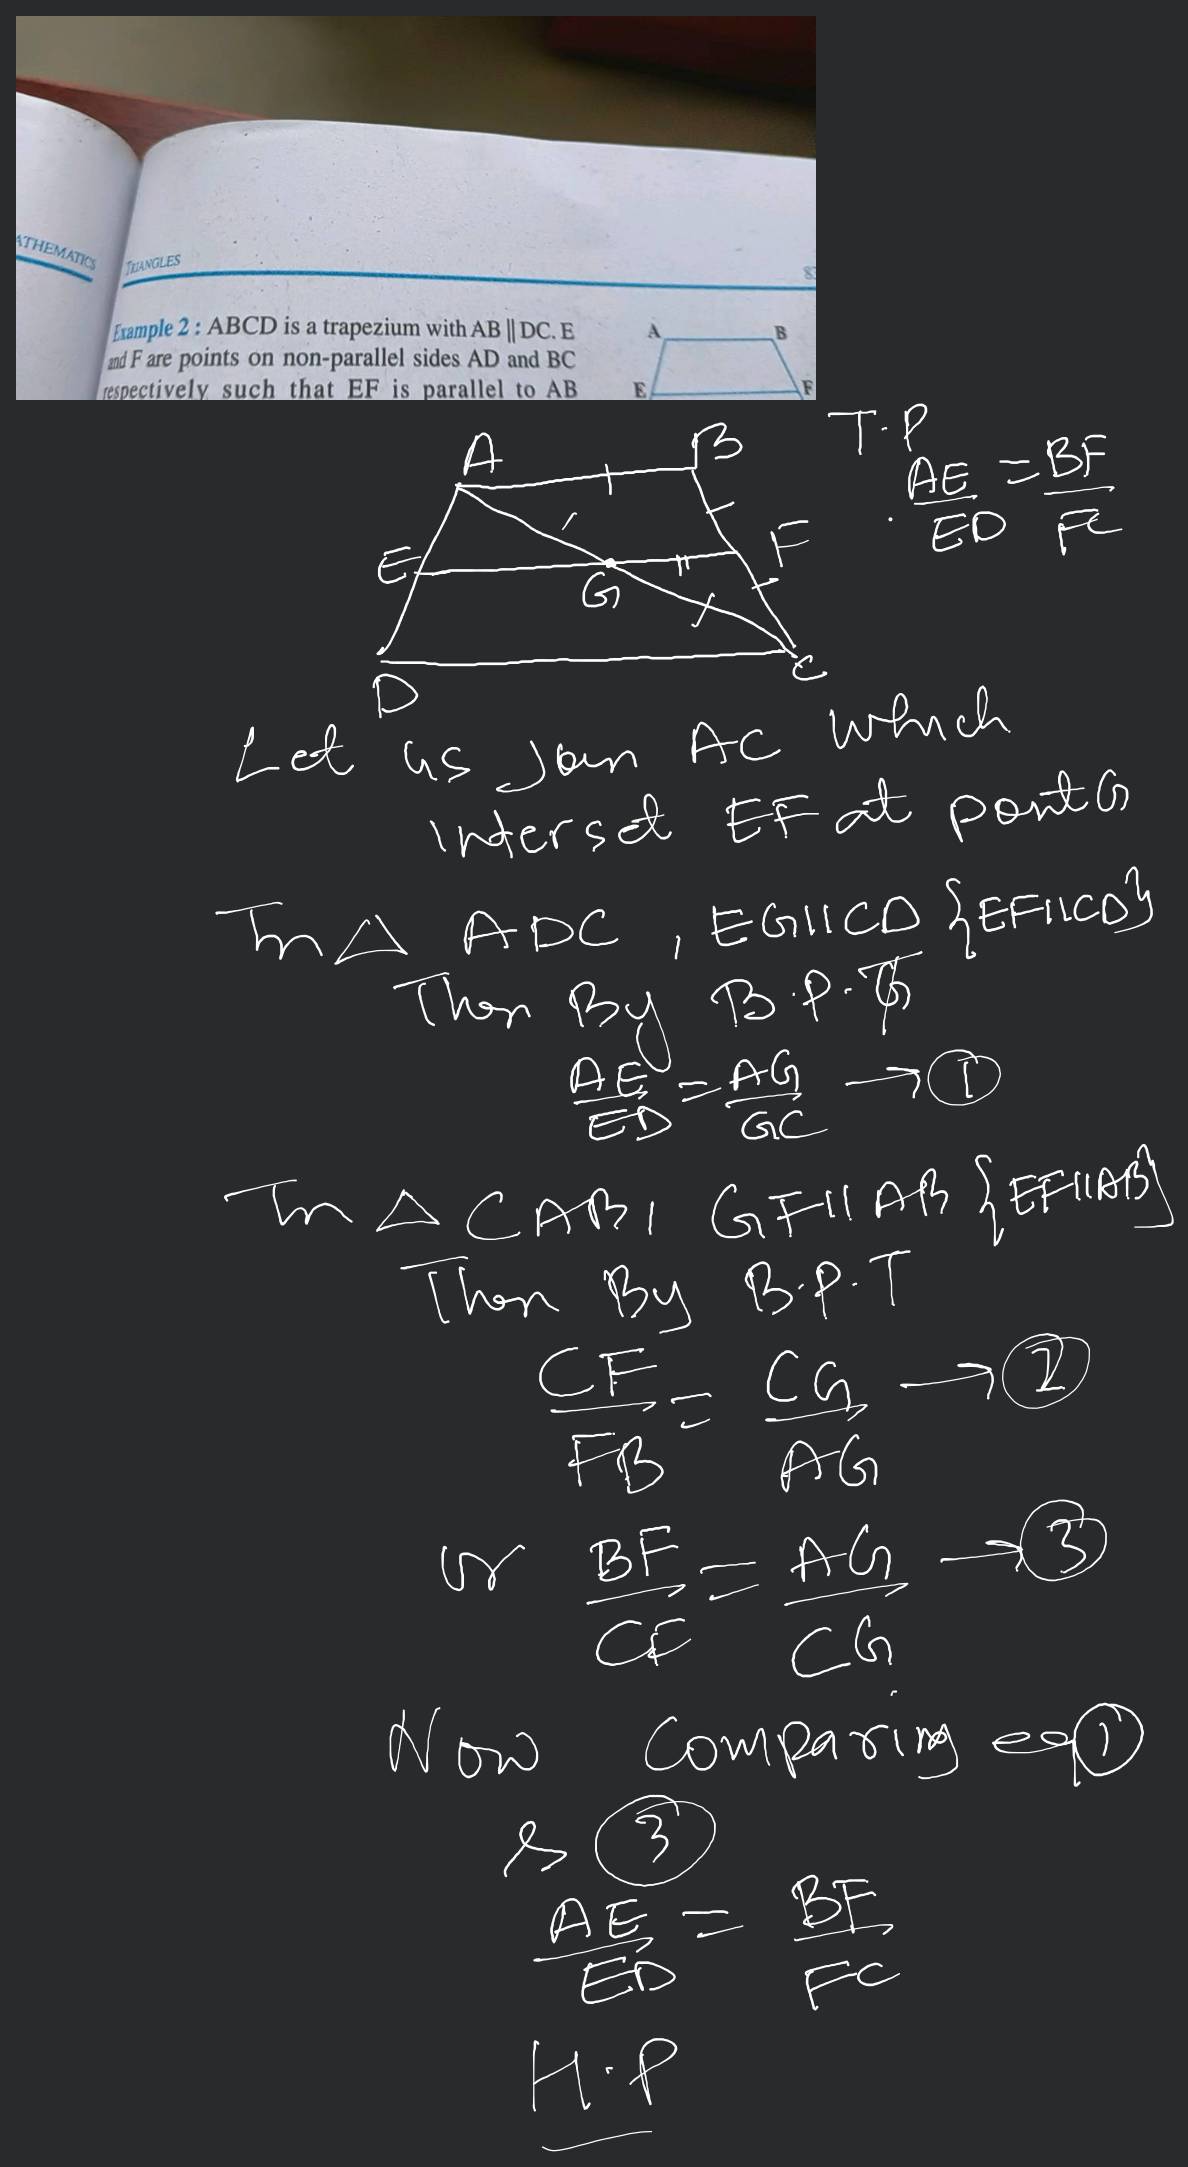 ATHEMATICS
TRIANGLES
Example 2 : ABCD is a trapezium with AB || DC. E
and F are points on non-parallel sides AD and BC
respectively such that EF is parallel to AB
A B
E F
T.P
AE/ED = BF/FC
A B
E G F
D C
Let us Join AC which
interset EF at pont G
In △ ADC , EG||CD {EF||CD}
Then By B.P.T
AE/ED = AG/GC → ①
In △ CAB, GF|| AB {EF||AB}
Then By B.P.T
CF/FB = CG/AG → ②
or BF/CF = AG/CG → ③
Now Comparing eq ①
& ③
AE/ED = BF/FC
H.P